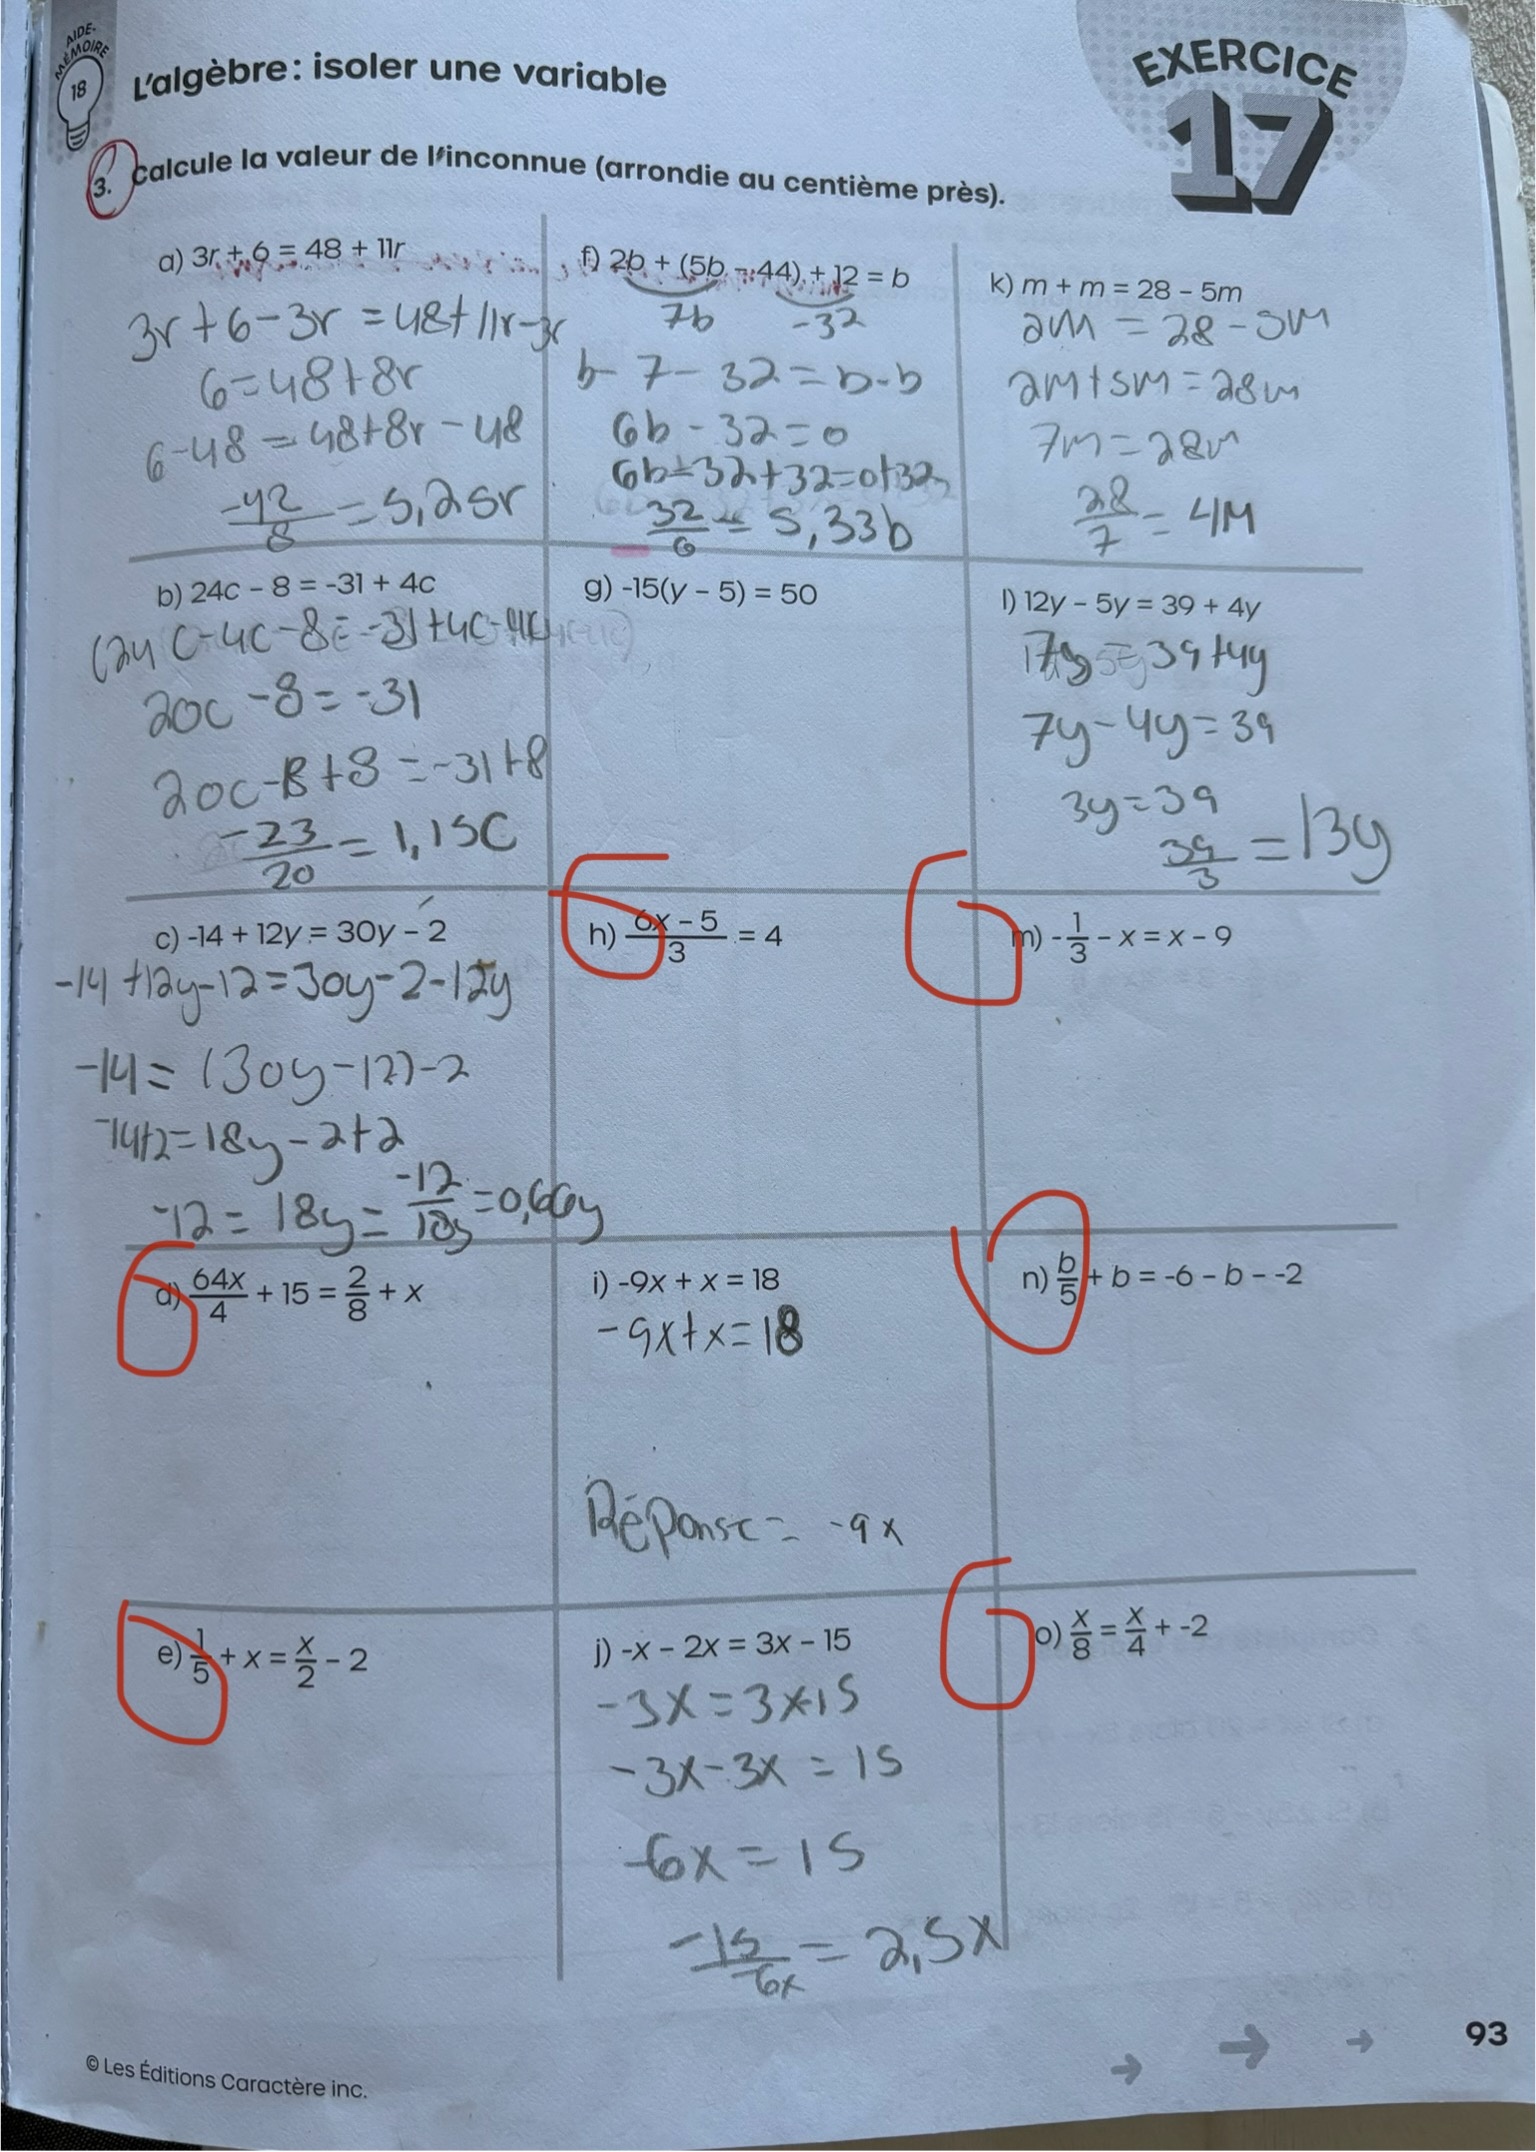 AIDE-
MÉMOIRE
18
L'algèbre : isoler une variable
EXERCICE
17
3. Calcule la valeur de l'inconnue (arrondie au centième près).
a) 3r + 6 = 48 + 11r
3r + 6 - 3r = 48 + 11r - 3r
6 = 48 + 8r
6 - 48 = 48 + 8r - 48
-42/8 = 5,25r
b) 24c - 8 = -31 + 4c
(24c - 4c - 8 = -31 + 4c - 4c
20c - 8 = -31
20c - 8 + 8 = -31 + 8
-23/20 = 1,15c
c) -14 + 12y = 30y - 2
-14 + 12y - 12 = 30y - 2 - 12y
-14 = (30y - 12) - 2
-14 + 2 = 18y - 2 + 2
-12 = 18y = -12/18y = 0,66y
d) 64x/4 + 15 = 2/8 + x
e) 1/5 + x = x/2 - 2
f) 2b + (5b - 44) + 12 = b
7b -32
b - 7 - 32 = b - b
6b - 32 = 0
6b - 32 + 32 = 0 + 32
32/6 = 5,33b
g) -15(y - 5) = 50
h) 6x - 5/3 = 4
i) -9x + x = 18
-9x + x = 18
Réponse = -9x
j) -x - 2x = 3x - 15
-3x = 3x-15
-3x - 3x = 15
-6x = 15
-15/6x = 2,5x
k) m + m = 28 - 5m
2m = 28 - 5m
2m + 5m = 28m
7m = 28m
28/7 = 4m
l) 12y - 5y = 39 + 4y
7y = 39 + 4y
7y - 4y = 39
3y = 39
39/3 = 13y
m) -1/3 - x = x - 9
n) b/5 + b = -6 - b - -2
o) x/8 = x/4 + -2
93
© Les Éditions Caractère inc.